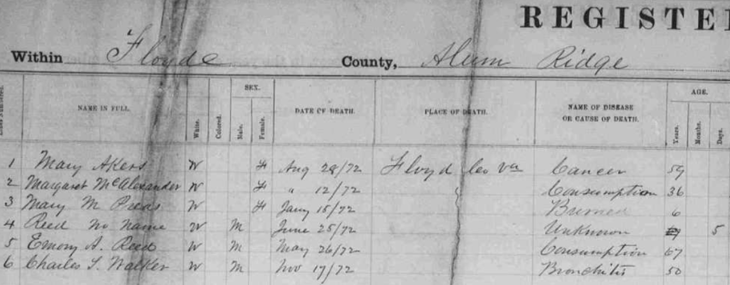 REGISTE
Within Floyd County, Alum Ridge
NAME IN FULL. White. Colored. SEX. Male. Female. DATE OF DEATH. PLACE OF DEATH. NAME OF DISEASE OR CAUSE OF DEATH. AGE. Years. Months. Days.
1 Mary Akers W F Aug 28/72 Floyd Co Va Cancer 59
2 Margaret McAlexander W F " 12/72 Consumption 36
3 Mary M W F Jany 15/72 Burned 6
4 Reed No Name W M June 25/72 Unknown 5
5 Emory A. Reed W M May 26/72 Consumption 67
6 Charles T. Walker W M Nov 17/72 Bronchitis 50